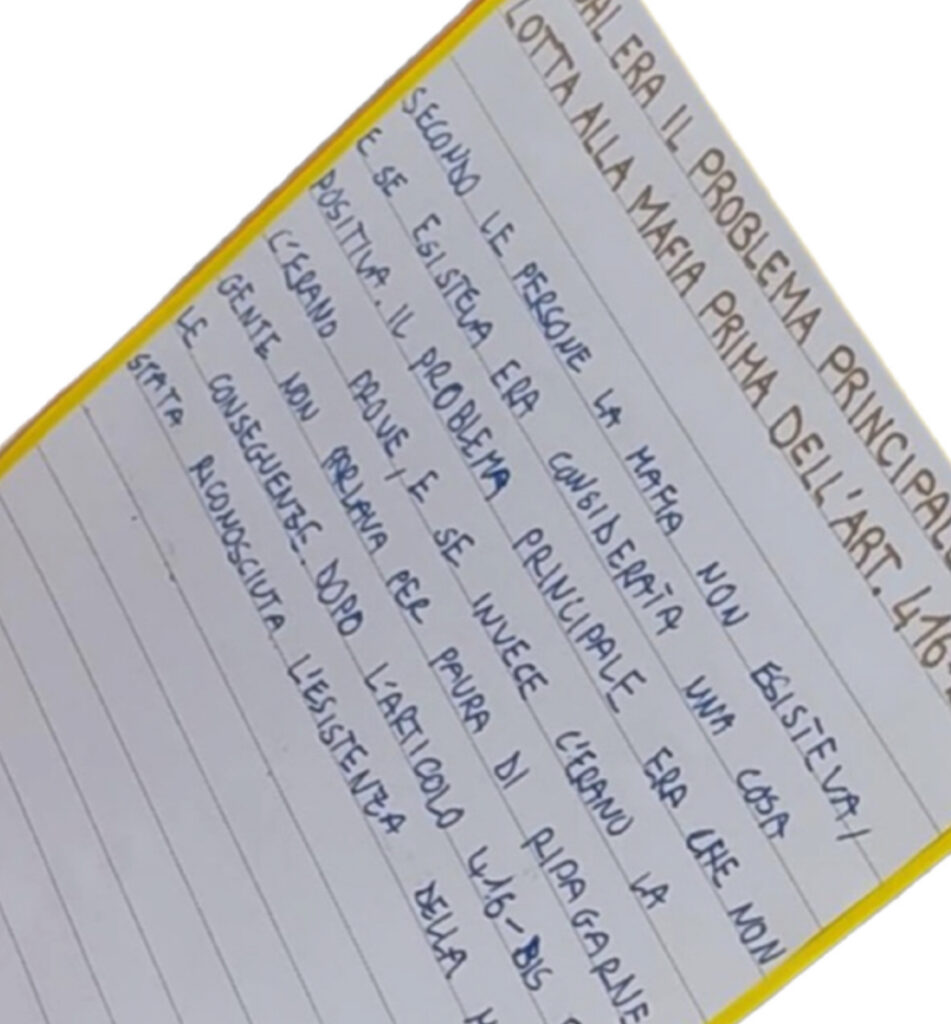 AL ERA IL PROBLEMA PRINCIPALE
LOTTA ALLA MAFIA PRIMA DELL'ART. 416-
SECONDO LE PERSONE LA MAFIA NON ESISTEVA/
E SE ESISTEVA ERA CONSIDERATA UNA COSA
POSITIVA. IL PROBLEMA PRINCIPALE ERA CHE NON
C'ERANO PROVE, E SE INVECE C'ERANO LA
GENTE NON PARLAVA PER PAURA DI RIPAGARNE
LE CONSEGUENZE. DOPO L'ARTICOLO 416-BIS
STATA RICONOSCIUTA L'ESISTENZA DELLA